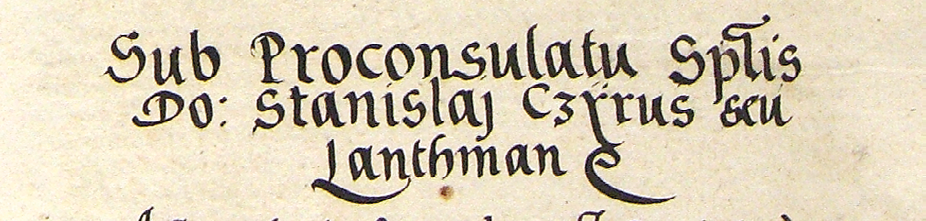 Sub Proconsulatu Sptlis
Do: Stanislaj Czÿrus seu
Lanthman